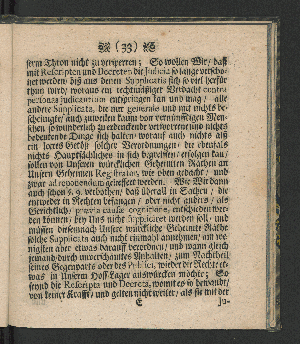 (33)
serm Thron nicht zu versperren; So wollen Wir/ daß
mit Rescripten und Decreten die Judicia so lange verschonet
werden/ biß aus denen Supplicatis sich so viel herfür
thun wird/ woraus ein rechtmäßiger Verdacht contra
personas judicantium entspringen kan und mag/ alle
andere Supplicata, die nur generalia und mit nichts
bescheiniget/ auch zuweilen kaum von vernünfftigen Menschen
so wunderlich zu erdenckende verworrene und nichts
bedeutende Dinge sich halten/ worauf auch nichts als
ein leeres Gethön solcher Verordnungen/ die ebenfals
nichts Hauptsächliches in sich begreiffen/ erfolgen kan/
sollen von Unseren würcklichen Geheimten Räthen an
Unsern Geheimen Registrator, wie oben gedacht/ und
zwar ad reponendum gelieffert werden. Wie Wir dann
auch schon §. 9. verboten/ daß überall in Sachen/ die
entweder in Rechten befangen/ oder nicht anders/ als
Gerichtlich/ prævia causæ cognitione, entschieden werden
können/ bey Uns nicht Suppliciret werden soll/ und
müssen diesemnach Unsere würckliche Geheimte Räthe
solche Supplicata auch nicht einmahl annehmen/ am wenigsten
aber etwas darauff verordnen/ und wann gleich
jemand/ durch unverschämtes Anhalten/ zum Nachtheil
seines Gegenparts oder des Publici, wieder die Rechte/ etwas
in Unserm Hoff-Lager auswürcken möchte; So
seynd die Rescripta und Decreta, womit es so bewandt/
von keiner Krafft/ und gelten nicht weiter/ als sie mit der
E Ju-